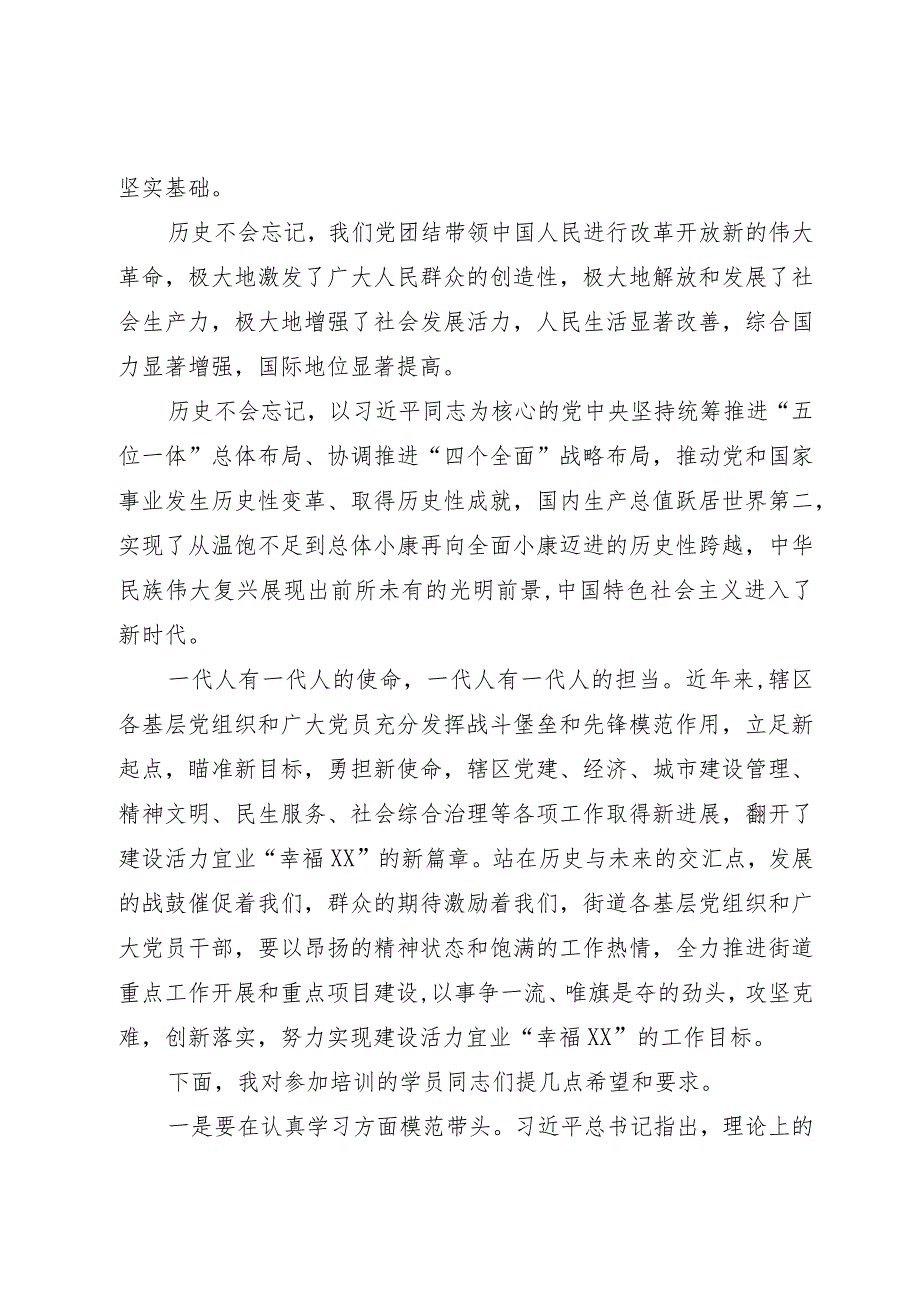 坚实基础。
历史不会忘记，我们党团结带领中国人民进行改革开放新的伟大
革命，极大地激发了广大人民群众的创造性，极大地解放和发展了社
会生产力，极大地增强了社会发展活力，人民生活显著改善，综合国
力显著增强，国际地位显著提高。
历史不会忘记，以习近平同志为核心的党中央坚持统筹推进“五
位一体”总体布局、协调推进“四个全面”战略布局，推动党和国家
事业发生历史性变革、取得历史性成就，国内生产总值跃居世界第二，
实现了从温饱不足到总体小康再向全面小康迈进的历史性跨越，中华
民族伟大复兴展现出前所未有的光明前景,中国特色社会主义进入了
新时代。
一代人有一代人的使命，一代人有一代人的担当。近年来,辖区
各基层党组织和广大党员充分发挥战斗堡垒和先锋模范作用，立足新
起点，瞄准新目标，勇担新使命，辖区党建、经济、城市建设管理、
精神文明、民生服务、社会综合治理等各项工作取得新进展，翻开了
建设活力宜业“幸福XX”的新篇章。站在历史与未来的交汇点，发展
的战鼓催促着我们，群众的期待激励着我们，街道各基层党组织和广
大党员干部，要以昂扬的精神状态和饱满的工作热情，全力推进街道
重点工作开展和重点项目建设,以事争一流、唯旗是夺的劲头，攻坚克
难，创新落实，努力实现建设活力宜业“幸福XX”的工作目标。
下面，我对参加培训的学员同志们提几点希望和要求。
一是要在认真学习方面模范带头。习近平总书记指出，理论上的